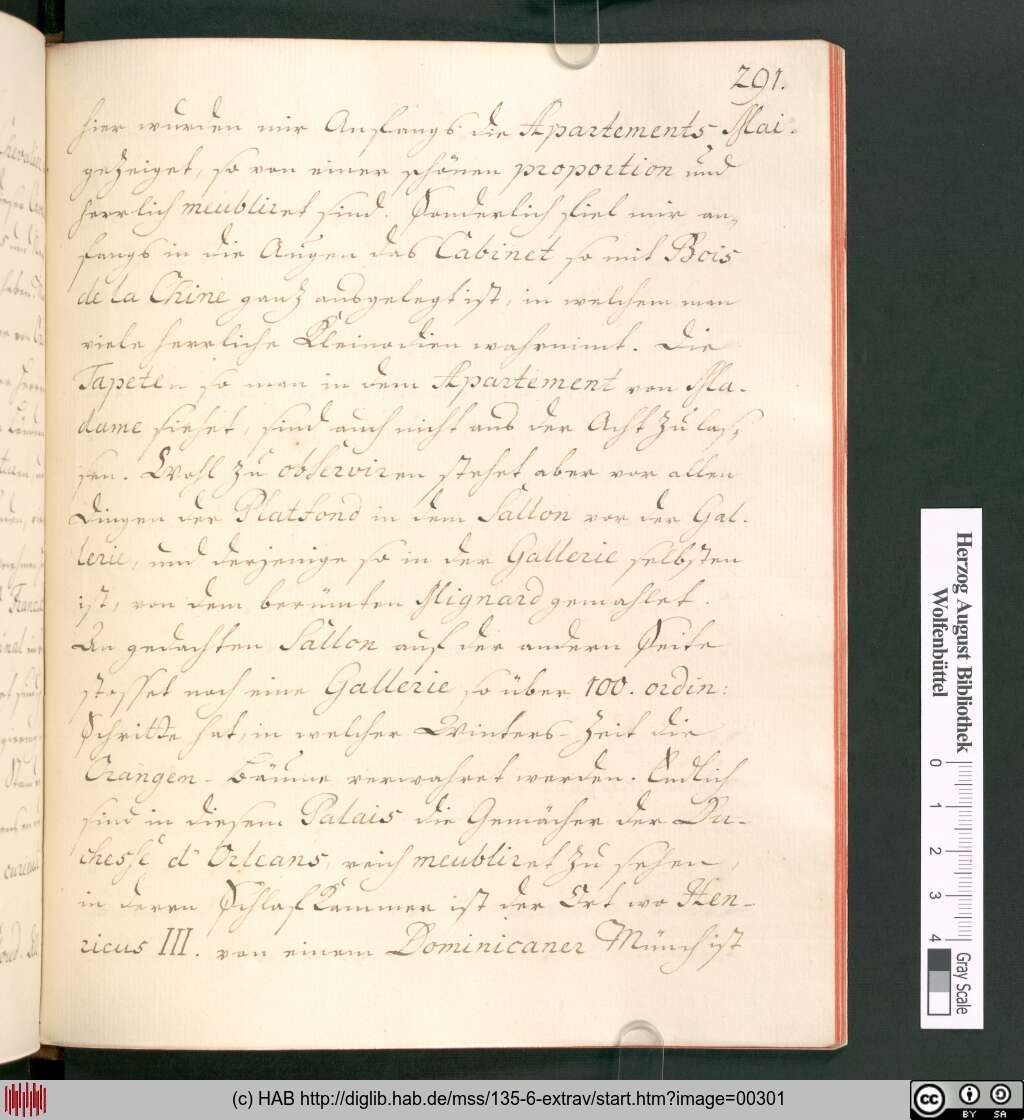 291.
hier wurden mir Anfangs die Apartements Mai-
gezeiget, so von einer schönen proportion und
herrlich meubliret sind. Sonderlich fiel mir an-
fangs in die Augen das Cabinet so mit Bois
de la Chine ganz ausgelegt ist, in welchem man
viele herrliche Kleinodien wahrnimt. Die
Tapeten so man in dem Apartement von Ma-
dame siehet, sind auch nicht aus der Acht zu las-
sen. Wohl zu observiren stehet aber vor allen
Dingen der Platfond in dem Sallon vor der Gal-
lerie, und derjenige so in der Gallerie selbsten
ist, von dem berümten Mignard gemahlet.
An gedachten Sallon auf der andern Seite
stosset noch eine Gallerie so über 100. ordin:
Schritte hat, in welcher Winters-Zeit die
Orangen-Bäume verwahret werden. Endlich
sind in diesem Palais die Gemächer der Du-
chesse d'Orleans, reich meubliret zu sehen,
in deren Schlaf Kammer ist der Ort wo Hen-
ricus III. von einem Dominicaner Münch ist
Herzog August Bibliothek
Wolfenbüttel
0 1 2 3 4
Gray Scale
(c) HAB http://diglib.hab.de/mss/135-6-extrav/start.htm?image=00301
cc BY SA